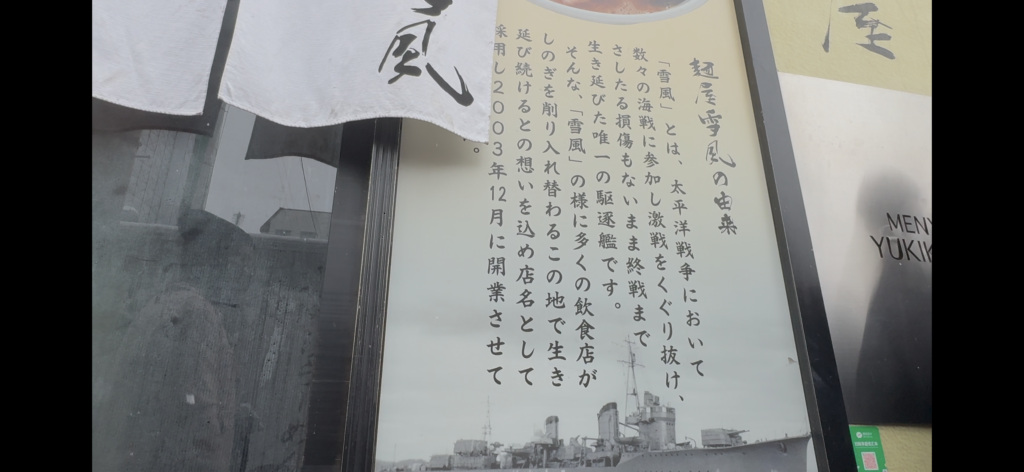 風
屋
麺屋雪風の由来
「雪風」とは、太平洋戦争において
数々の海戦に参加し激戦をくぐり抜け、
さしたる損傷もないまま終戦まで
生き延びた唯一の駆逐艦です。
そんな、「雪風」の様に多くの飲食店が
しのぎを削り入れ替わるこの地で生き
延び続けるとの想いを込め店名として
採用し2003年12月に開業させて
。
MENY
YUKIK